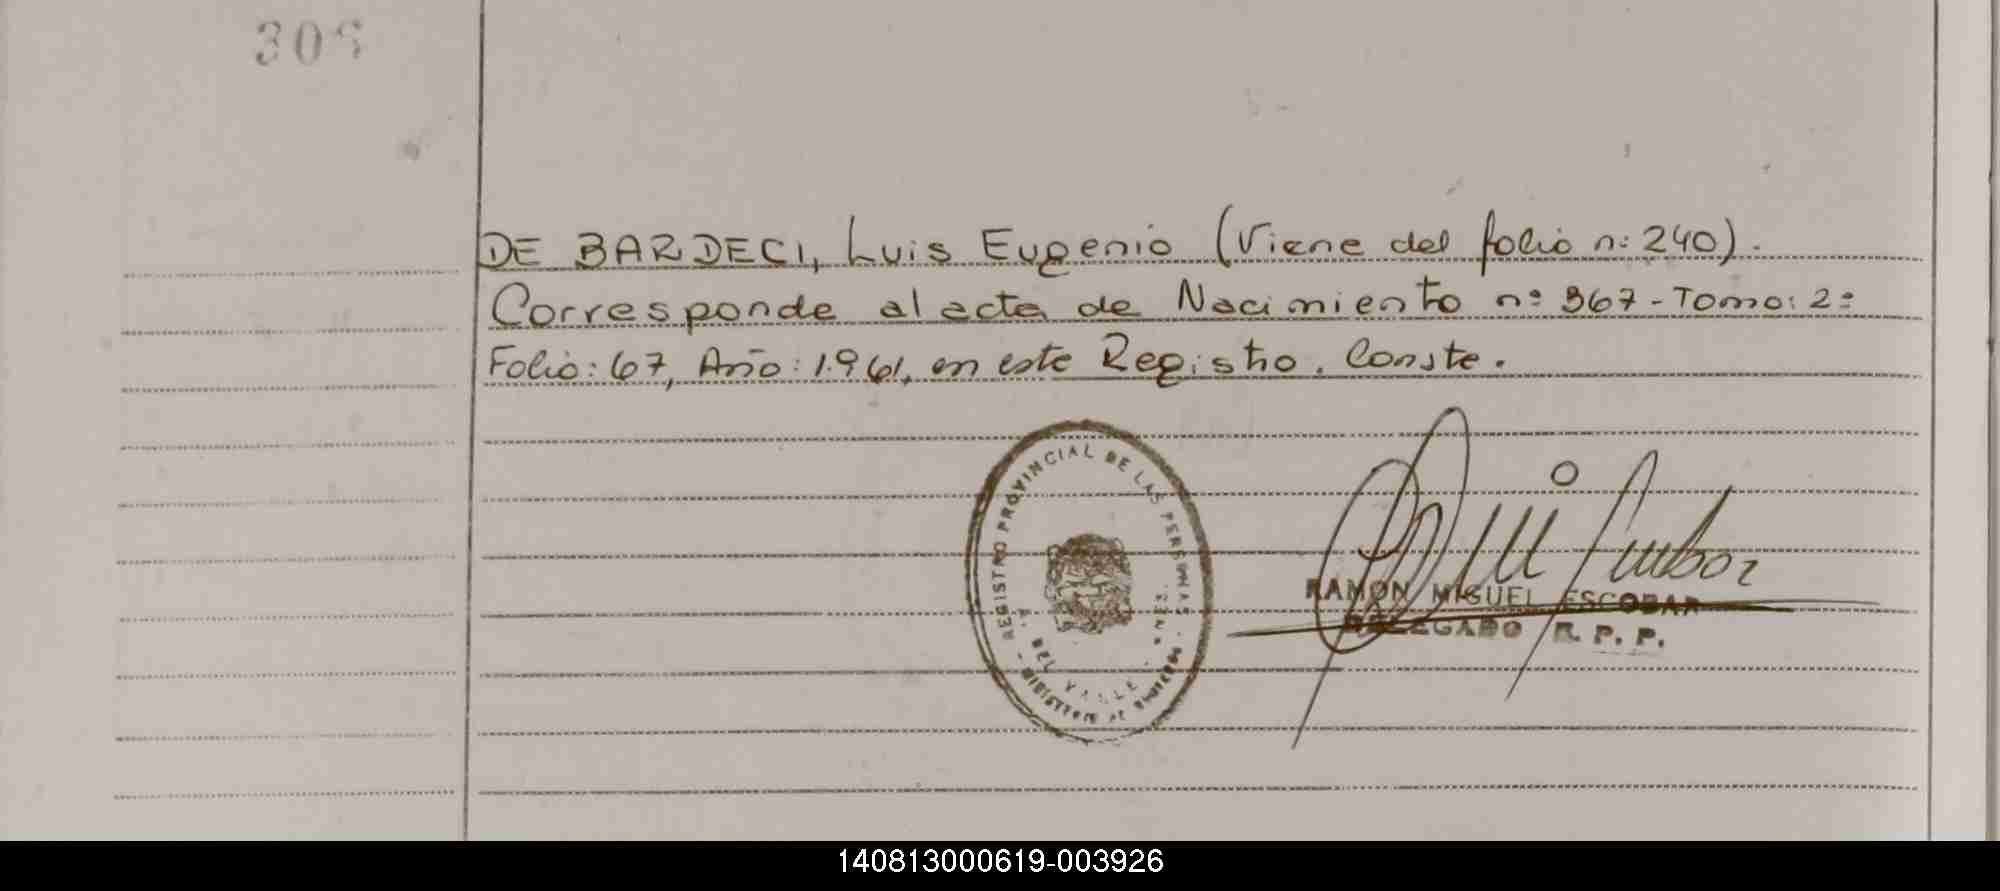 DE BARDECI, Luis Eugenio (Viene del folio n: 240).
Corresponde al acta de Nacimiento nº 367 - Tomo: 2º
Folio: 67, Año: 1.961, en este Registro. Conste.
REGISTRO PROVINCIAL DE LAS PERSONAS
DEL VALLE
RAMON MIGUEL ESCOBAR
DELEGADO R. P. P.
140813000619-003926